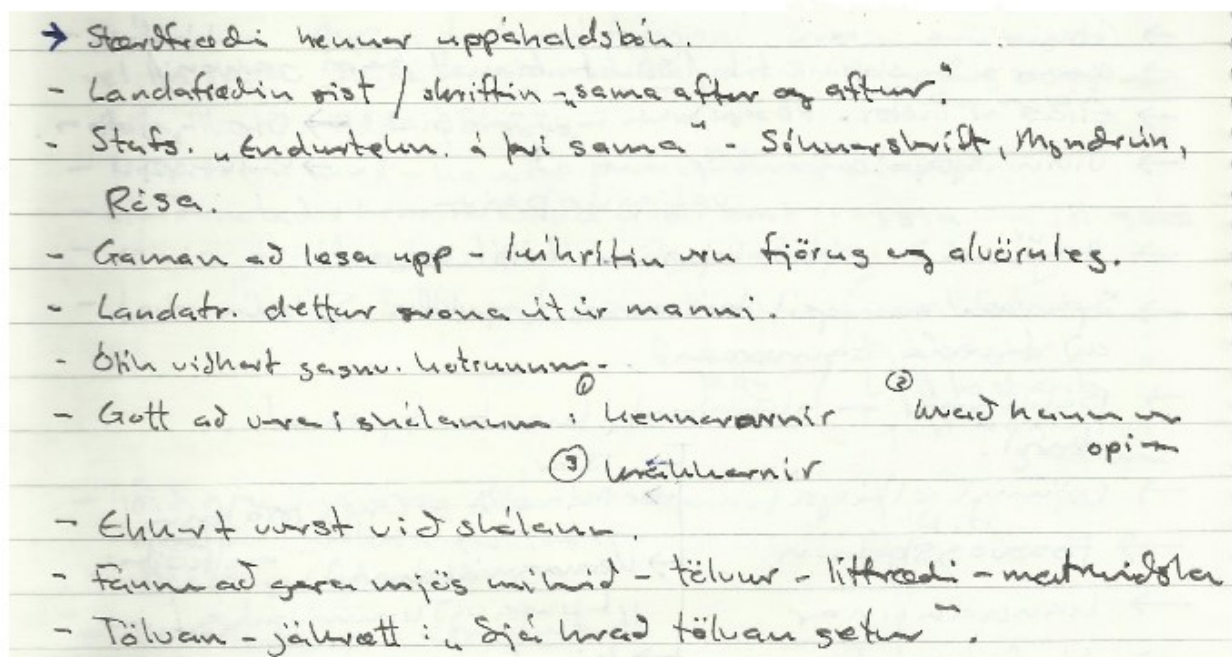 → Stærðfræði hennar uppáhaldsbók.
- Landafræðin sist / skriftin - „sama aftur og aftur."
- Stafs. „Endurtekn. á því sama" - Sóknarskrift, Myndrún,
Rósa.
- Gaman að lesa upp - leikritin eru fjörug og alvöruleg.
- Landafr. dettur svona útúr manni.
- Ólík viðhorf gagnv.
- Gott að vera í skólanum: ① kennararnir ② hvað hann er
opin
③ krakkarnir
- Ekkert verst við skólann.
- Fáum að gera mjög mikið - tölvur - líffræði - matreiðsla
- Tölvan - jákvætt: „Sjá hvað tölvan getur".